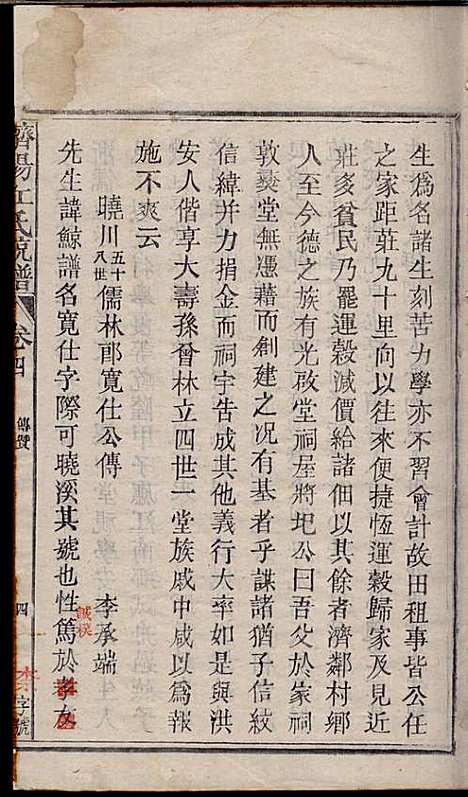 生爲名諸生刻苦力學亦不習會計故田租事皆公任
之家距莊九十里向以往來便捷恆運穀歸家及見近
莊多貧民乃罷運穀減價給諸佃以其餘者濟鄰村鄉
人至今德之族有光啟堂祠屋將圯公曰吾父於家祠
敦彞堂無慿藉而創建之况有基者乎謀諸猶子信紋
信緯并力捐金而祠宇告成其他義行大率如是與洪
安人偕享大壽孫曾林立四世一堂族戚中咸以爲報
施不爽云
曉川五十八世儒林郎寬仕公傳
李承端
先生諱鯨譜名寬仕字際可曉溪其號也性篤於孝友
濟陽江氏統譜
卷四
傳贊
四
字號